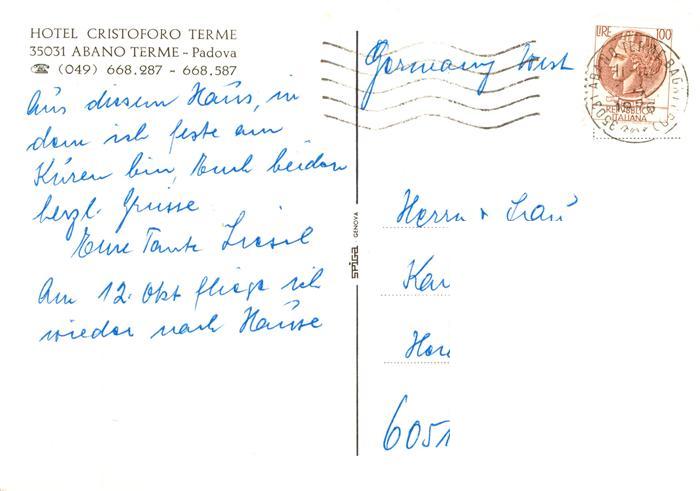 HOTEL CRISTOFORO TERME
35031 ABANO TERME - Padova
☎ (049) 668.287 - 668.587
Aus diesem Haus, in
dem ich feste am
Kuren bin, Euch beiden
herzl. Grüsse
Eure Tante Liesel
Am 12. Okt fliege ich
wieder nach Hause
SPIGA GENOVA
Germany West
LIRE 100
REPUBBLICA
ITALIANA
ABANO TERME
Herrn + Frau
Kar
6051